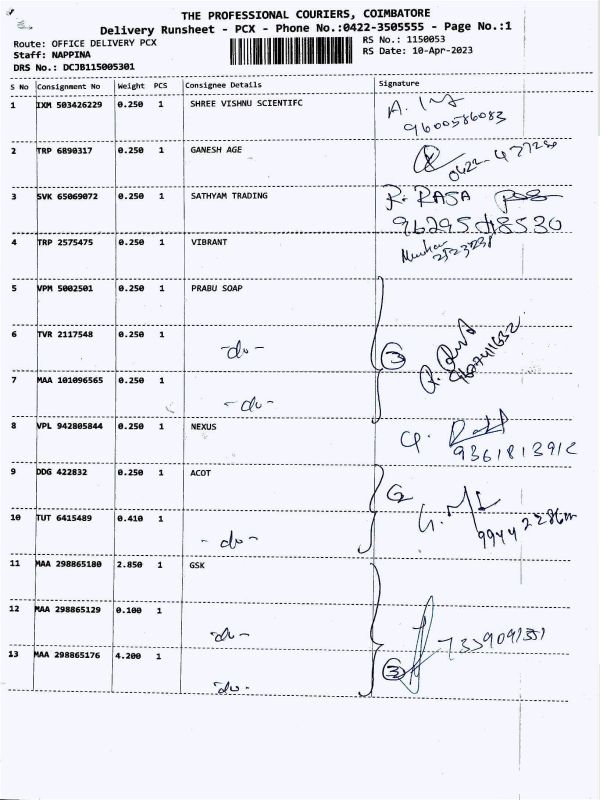 THE PROFESSIONAL COURIERS, COIMBATORE
Delivery Runsheet - PCX - Phone No.:0422-3505555 - Page No.:1
Route: OFFICE DELIVERY PCX RS No.: 1150053
Staff: NAPPINA RS Date: 10-Apr-2023
DRS No.: DCJB115005301
S No Consignment No Weight PCS Consignee Details Signature
1 IXM 503426229 0.250 1 SHREE VISHNU SCIENTIFC
9600586083
2 TRP 6890317 0.250 1 GANESH AGE
3 SVK 65069072 0.250 1 SATHYAM TRADING R. RASA
9629548530
4 TRP 2575475 0.250 1 VIBRANT
5 VPM 5002501 0.250 1 PRABU SOAP
6 TVR 2117548 0.250 1 -do- 3
7 MAA 101096565 0.250 1 -do-
8 VPL 942805844 0.250 1 NEXUS
9361813912
9 DDG 422832 0.250 1 ACOT 2
10 TUT 6415489 0.410 1 -do-
11 MAA 298865180 2.850 1 GSK
12 MAA 298865129 0.100 1 -do-
13 MAA 298865176 4.200 1 -do- 3